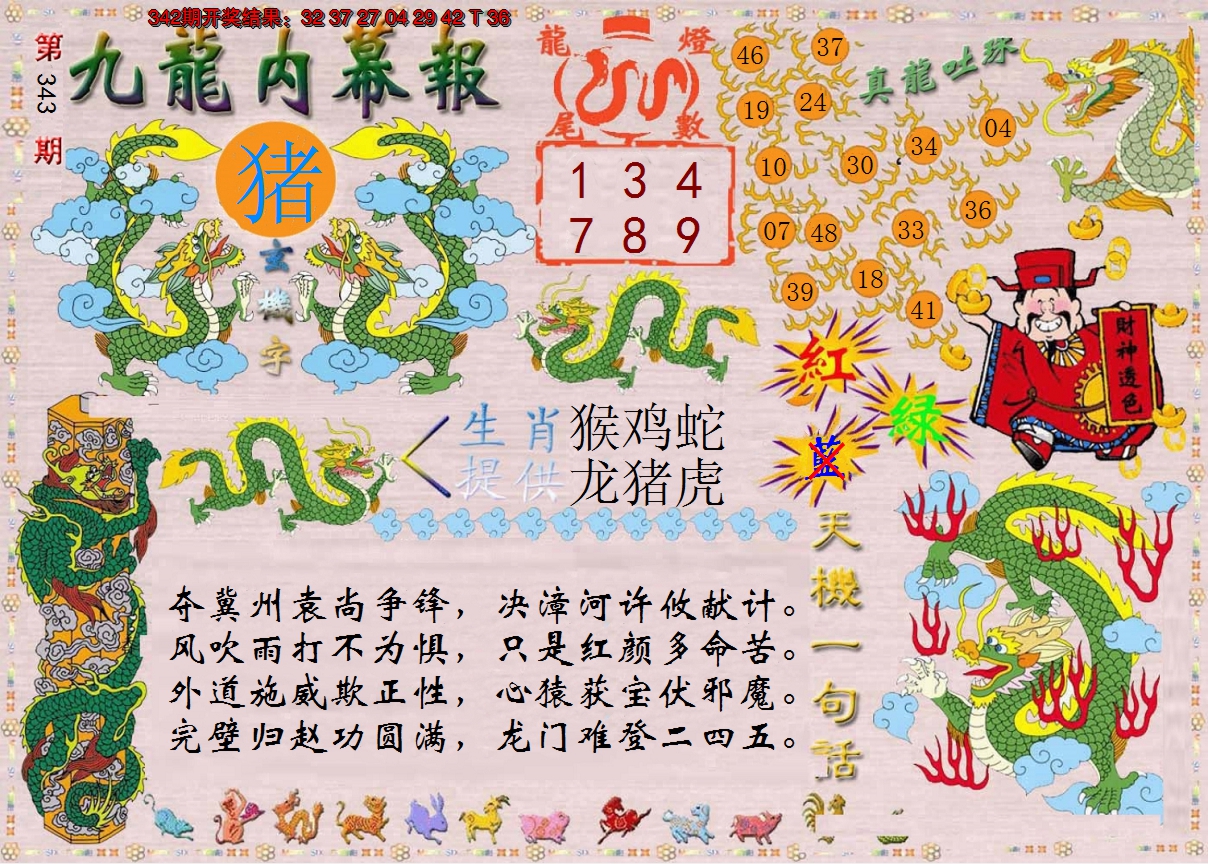 342期开奖结果：32 37 27 04 29 42 T 36
第343期
九龍内幕報
猪
玄機字
龍燈尾數
1 3 4
7 8 9
真龍吐珠
46 37
19 24
34 04
10 30
36
07 48 33
39 18
41
財神透色
紅
綠
藍
生肖提供
猴鸡蛇
龙猪虎
夺冀州袁尚争锋，决漳河许攸献计。
风吹雨打不为惧，只是红颜多命苦。
外道施威欺正性，心猿获宝伏邪魔。
完壁归赵功圆满，龙门难登二四五。
天機一句話